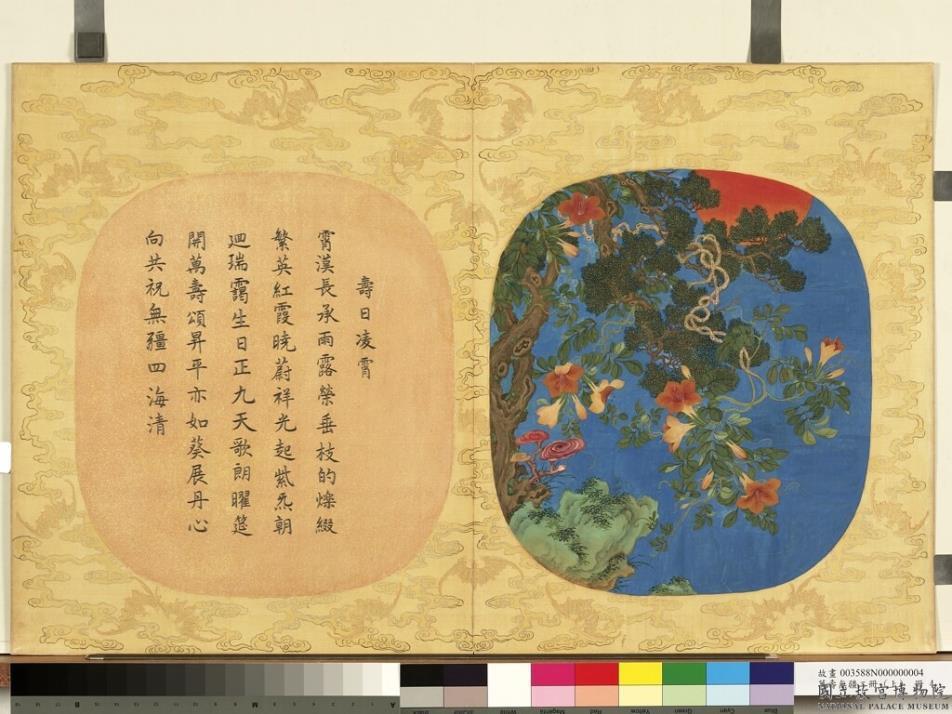 壽日凌霄
霄漢長承雨露榮垂枝的爍綴
繁英紅霞曉蔚祥光起紫炁朝
迴瑞靄生日正九天歌朗曜筵
開萬壽頌昇平亦如葵展丹心
向共祝無疆四海清
故畫 003588N000000004
國立故宮博物院
NATIONAL PALACE MUSEUM